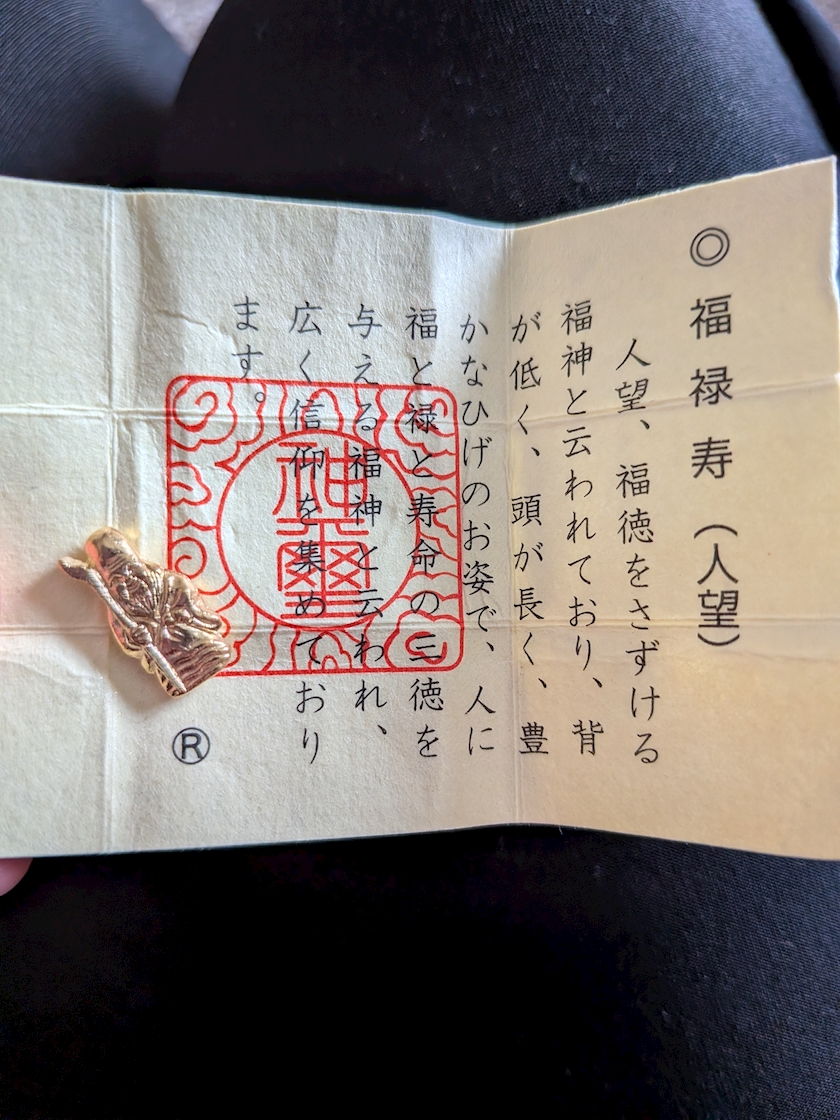 ◎福禄寿（人望）
人望、福徳をさずける
福神と云われており、背
が低く、頭が長く、豊
かなひげのお姿で、人に
福と禄と寿命の三徳を
与える福神と云われ、
広く信仰を集めており
ます。
神璽
Ⓡ